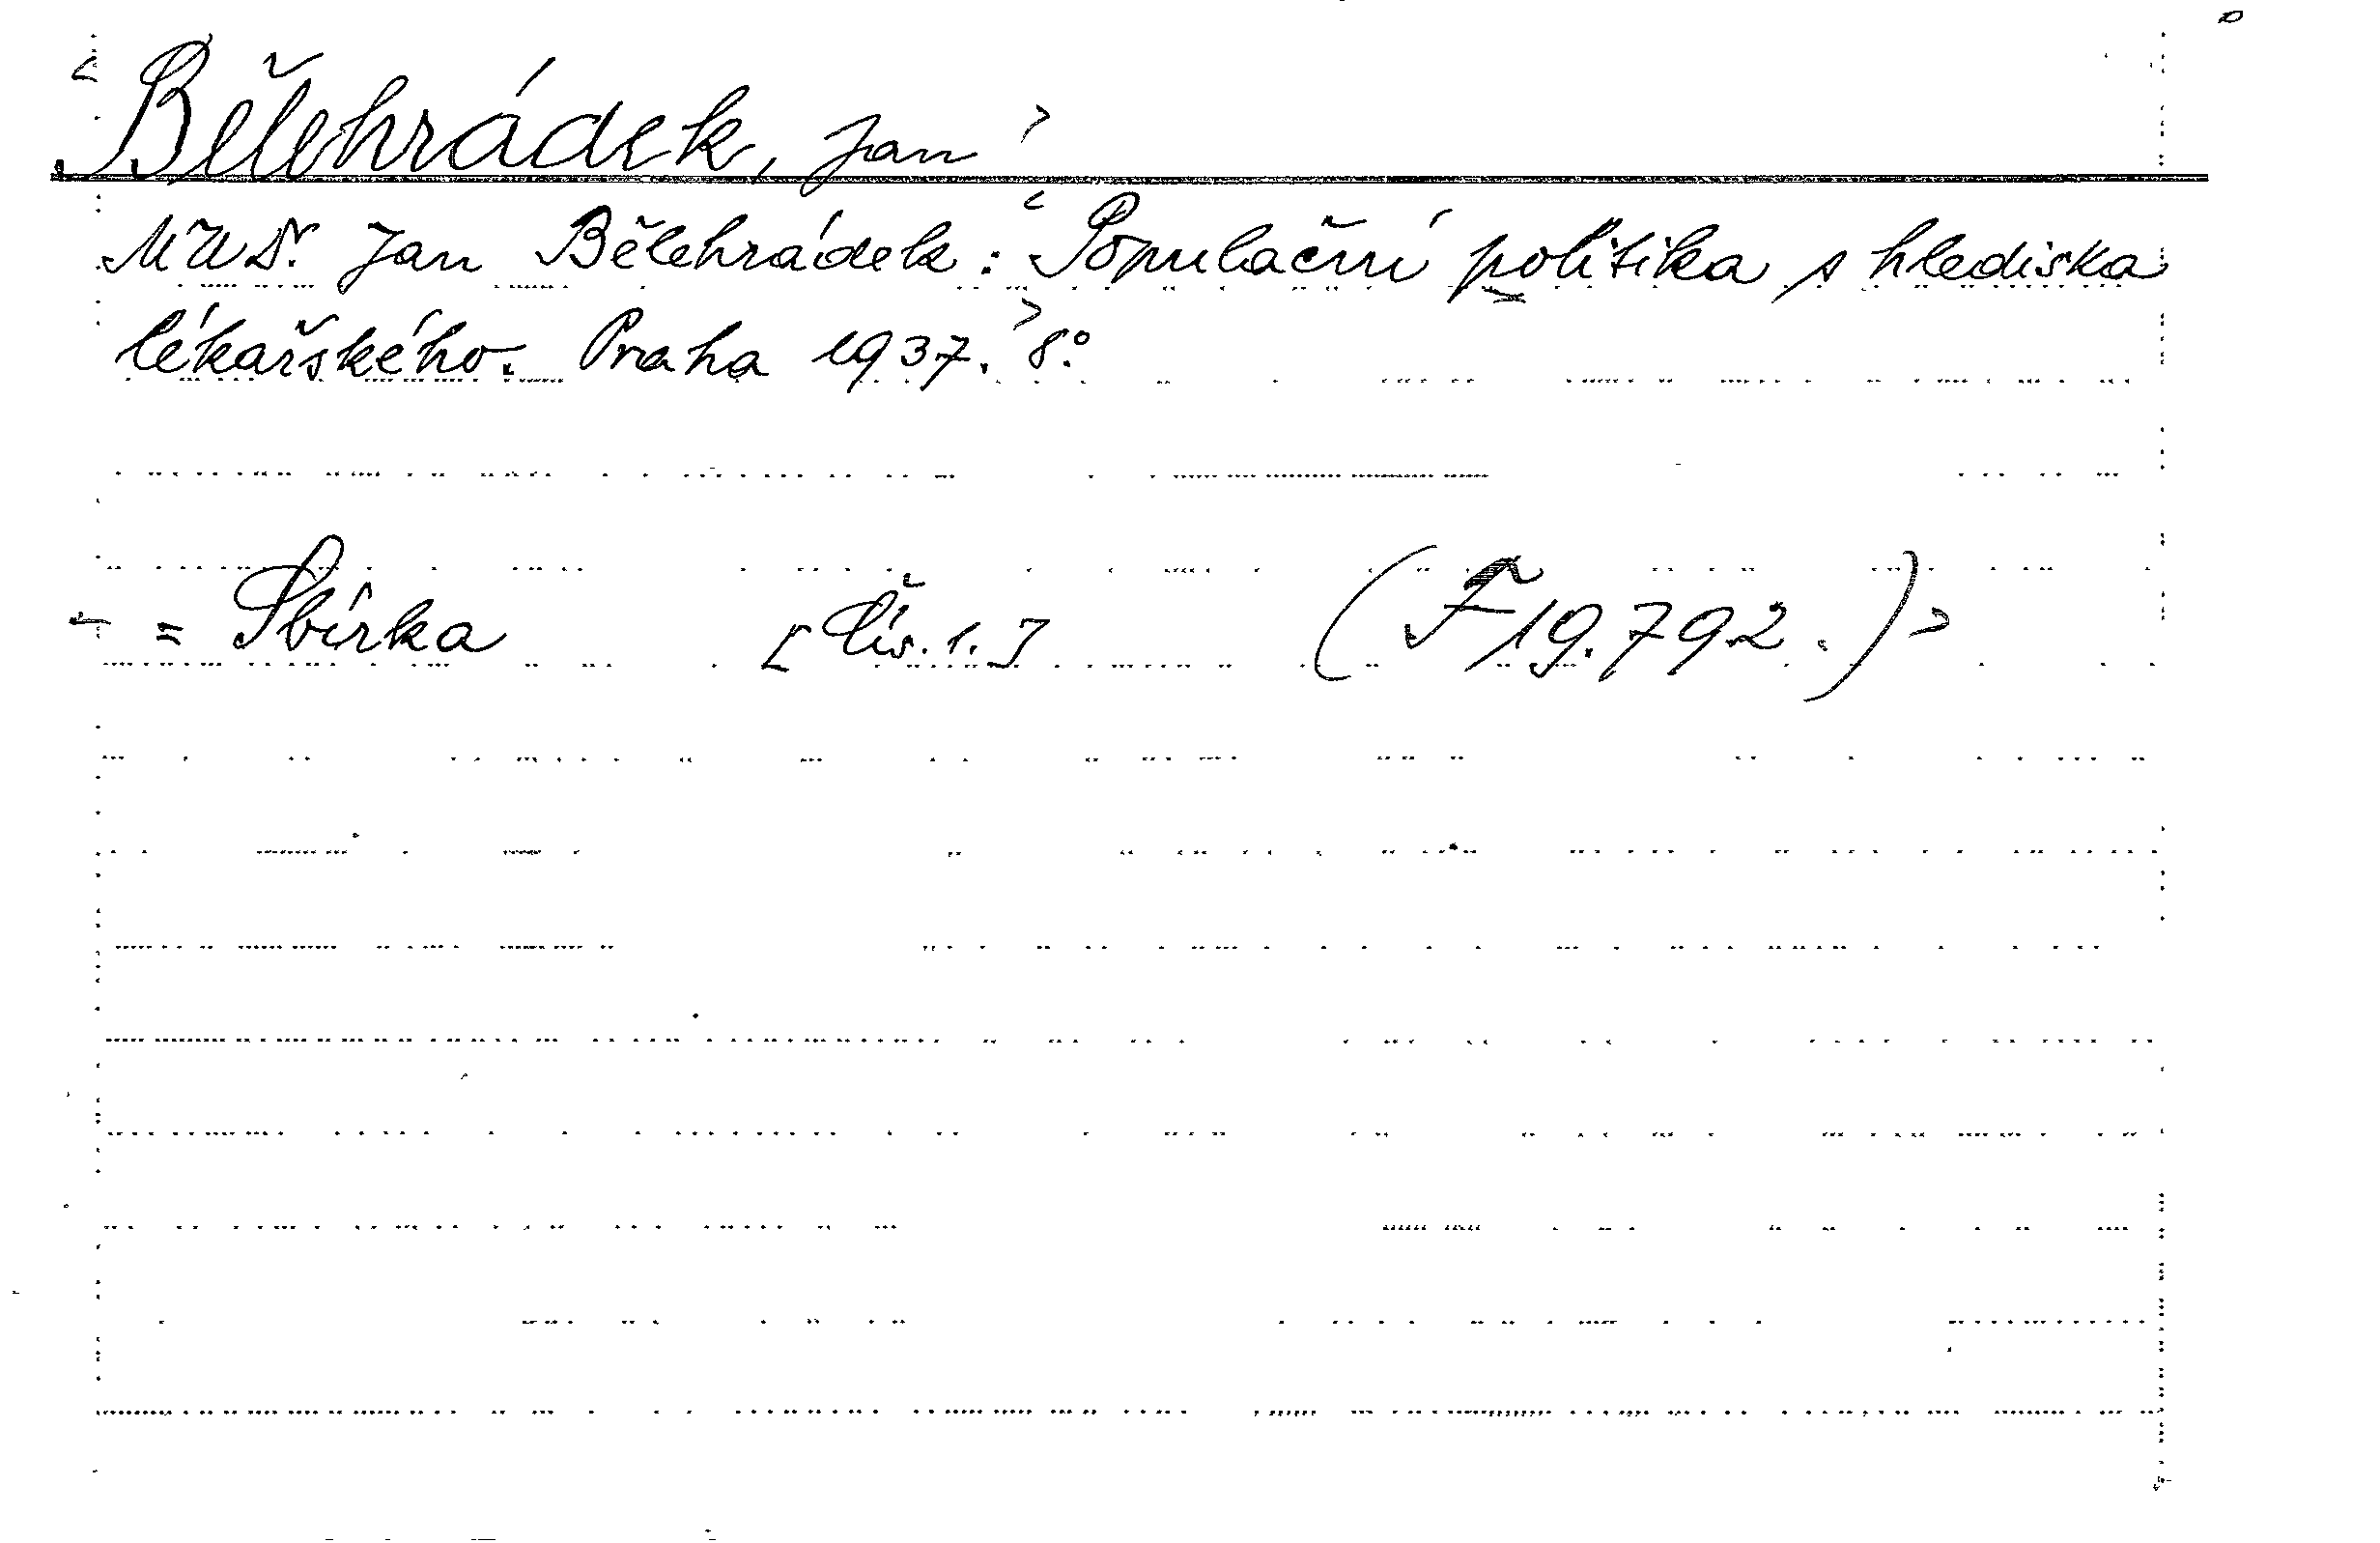 Bělehrádek, Jan
MUDr. Jan Bělehrádek: Populační politika s hlediska
lékařského. Praha 1937. 8°.
= Sbírka [Čís. 1.] (F 19.792.)